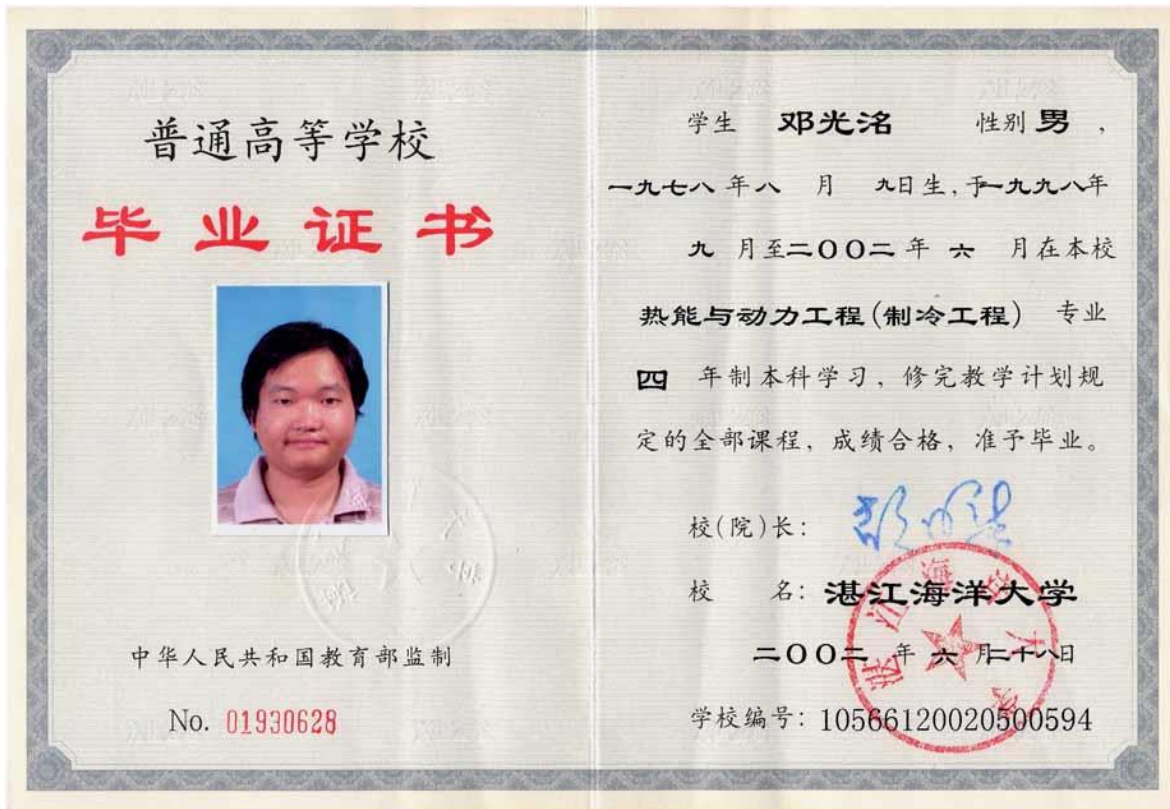 普通高等学校
毕业证书
中华人民共和国教育部监制
No. 01930628
学生 邓光洺 性别 男，
一九七八年八 月 九日生，于一九九八年
九 月至二〇〇二年 六 月在本校
热能与动力工程(制冷工程) 专业
四 年制本科学习，修完教学计划规
定的全部课程，成绩合格，准予毕业。
校(院)长：
校 名：湛江海洋大学
二〇〇二 年 六 月二十八日
学校编号：105661200205000594
湛江海洋大学